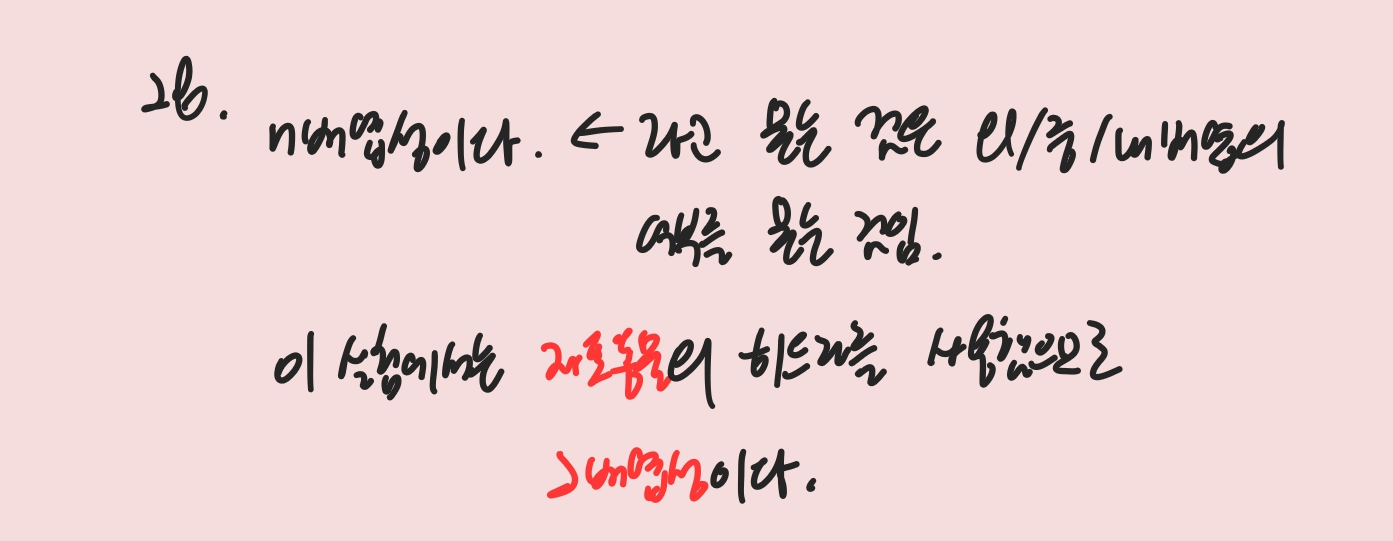 26.
n배엽성이다. ← 라고 묻는 것은 외/중/내배엽의
여부를 묻는 것임.
이 실험에서는 자포동물의 히드라를 사용했으므로
2배엽성이다.